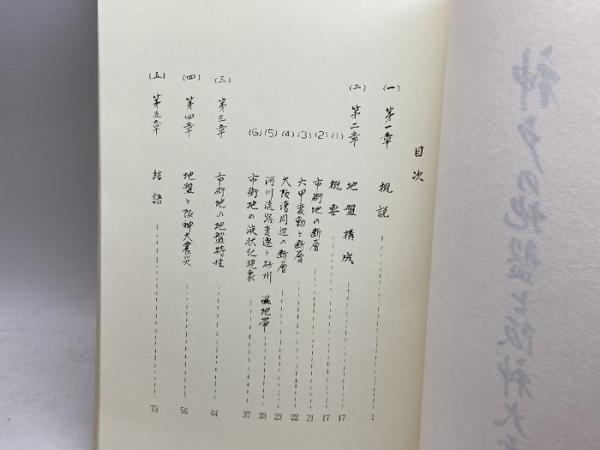 目次
(一) 第一章 概説 1
(二) 第二章 地盤構成 17
(1) 概要 17
(2) 市街地の断層 21
(3) 六甲変動と断層 22
(4) 大阪湾周辺の断層 23
(5) 河川流路変遷と砂州 湿地帯 33
(6) 市街地の液状化現象 37
(三) 第三章 市街地の地盤特性 44
(四) 第四章 地盤と阪神大震災 58
(五) 第五章 結語 73
神戸の地盤と阪神大